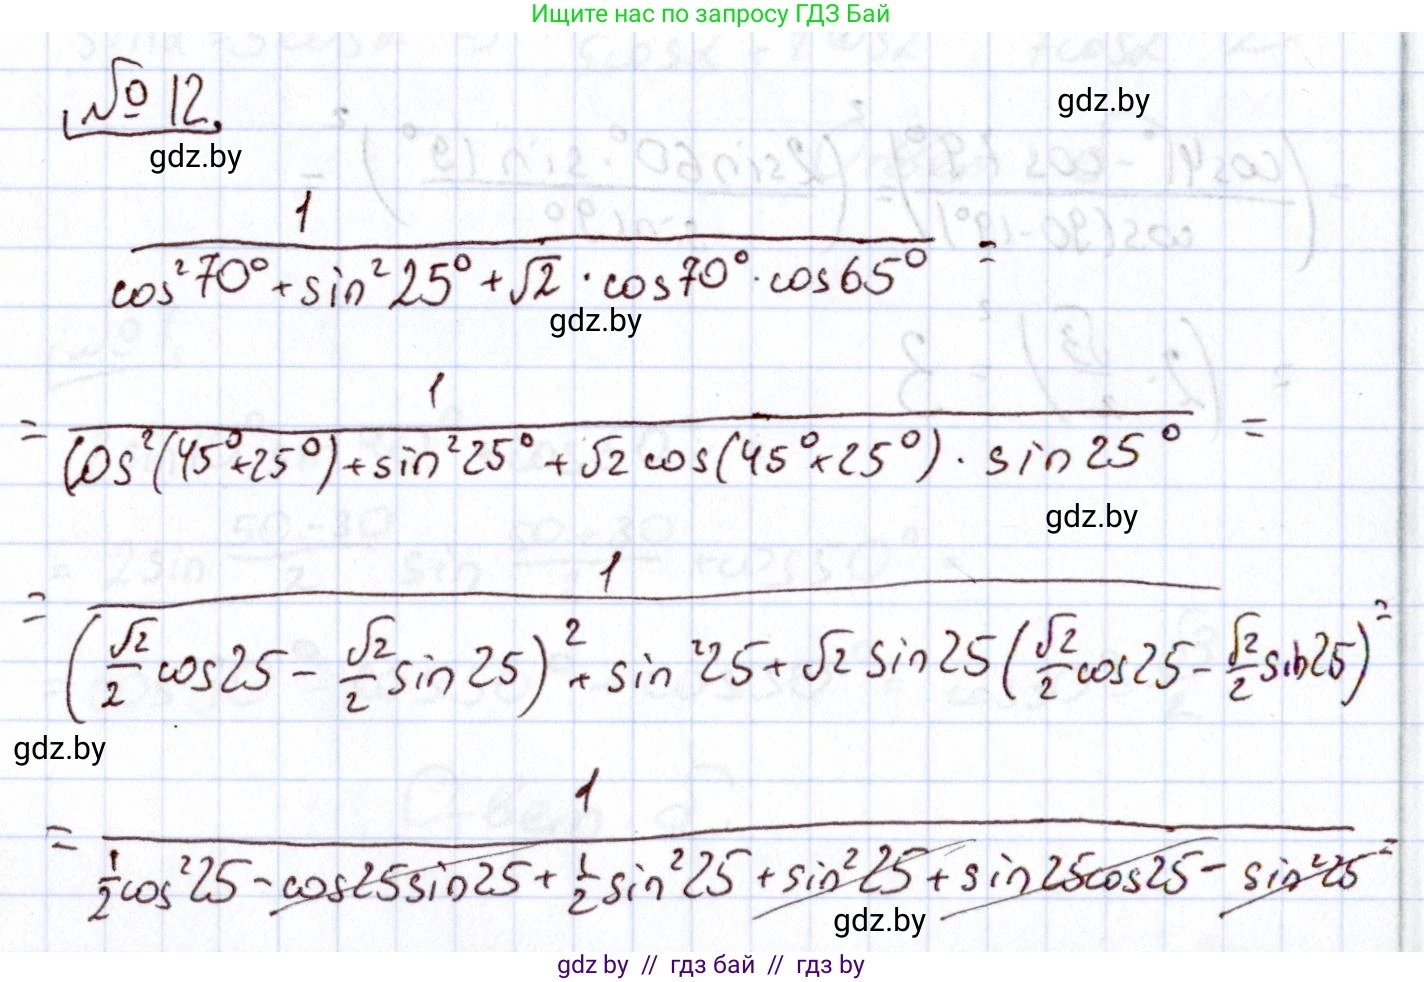 Ищите нас по запросу ГДЗ Бай
№ 12.
gdz.by
gdz.by
1
cos²70° + sin²25° + √2 · cos70° · cos65° =
gdz.by
1
= cos²(45°+25°) + sin²25° + √2 cos(45°+25°) · sin25° =
gdz.by
1
= (√2/2 cos25 - √2/2 sin25)² + sin²25 + √2 sin25 (√2/2 cos25 - √2/2 sin25) =
gdz.by
1
= 1/2 cos²25 - cos25sin25 + 1/2 sin²25 + sin²25 + sin25cos25 - sin²25 =
gdz.by
gdz by // гдз бай // гдз by